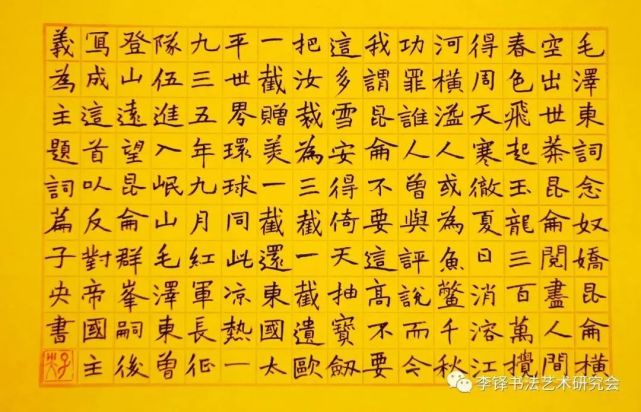 毛澤東詞念奴嬌昆侖橫
空出世莽昆侖閱盡人間
春色飛起玉龍三百萬攪
得周天寒徹夏日消溶江
河橫溢人或為魚鱉千秋
功罪誰人曾與評說而今
我謂昆侖不要這高不要
這多雪安得倚天抽寶劔
把汝裁為三截一截遺歐
一截贈美一截還東國太
平世界環球同此凉熱一
九三五年九月紅軍長征
隊伍進入岷山毛澤東曾
登山遠望昆侖群峯嗣後
冩成這首以反對帝國主
義為主題詞篇子央書
李铎书法艺术研究会